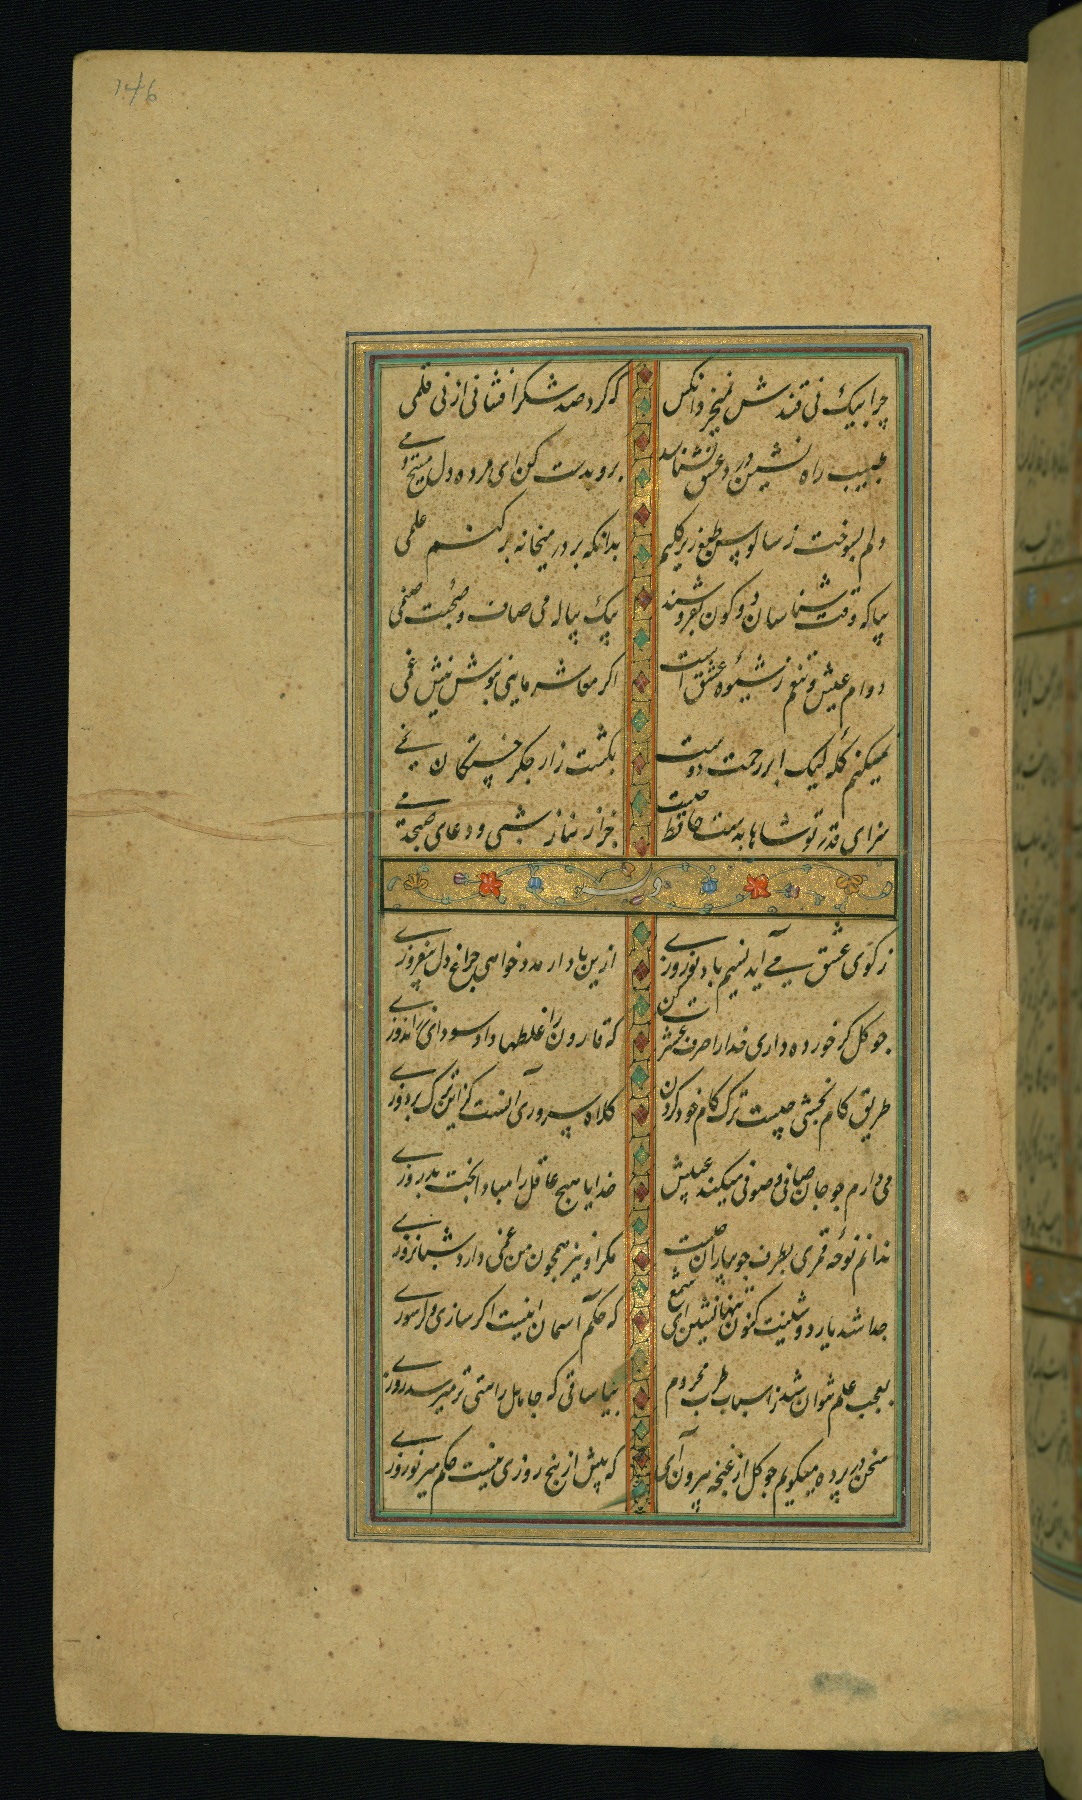 146
چرا بیک نی قندش نمیخرد آنکس
که کرد صد شکر افشانی از نی قلمی
طبیب راه نشین درد عشق نشناسد
برو بدست کن ای مرده دل مسیح دمی
دلم بسوخت ز سالوس و طبل زیر گلیم
بدانکه بر در میخانه برکنم علمی
بیا که وقت شناسان دو کون بفروشند
بیک پیاله می صاف و صحبت صنمی
دوام عیش و تنعم نه شیوه عشق است
اگر معاشر مایی بنوش نیش غمی
نمیکنم گله لیک ابر رحمت دوست
بکشت زار جگر خستگان نمی
سزای قدر تو شاها بدست حافظ چیست
جز از نیاز شبی و دعای صبحدمی
وله
ز کوی عشق می آید نسیم باد نوروزی
ازین باد ار مدد خواهی چراغ دل بیفروزی
چو گل گر خورده داری خدا را صرف عشرت کن
که قارون را غلطها داد سودای زراندوزی
طریق کام بخشی چیست ترک کام خود کردن
کلاه سروری آنست کز این ترک بردوزی
می دارم چو جان صافی و صوفی میکند عیبش
خدایا هیچ عاقل را مبادا بخت بد روزی
ندانم نوحه قمری بطرف جویباران چیست
مگر او نیز همچون من غمی دارد شبانروزی
جدا شد یار شیرینت کنون تنها نشین ای شمع
که حکم آسمان اینست اگر سازی و گر سوزی
بعجب علم نتوان شد ز اسباب طرب محروم
بیا ساقی که جاهل را هنی تر میرسد روزی
سخن در پرده میگویم چو گل از غنچه بیرون آی
که بیش از پنج روزی نیست حکم میر نوروزی